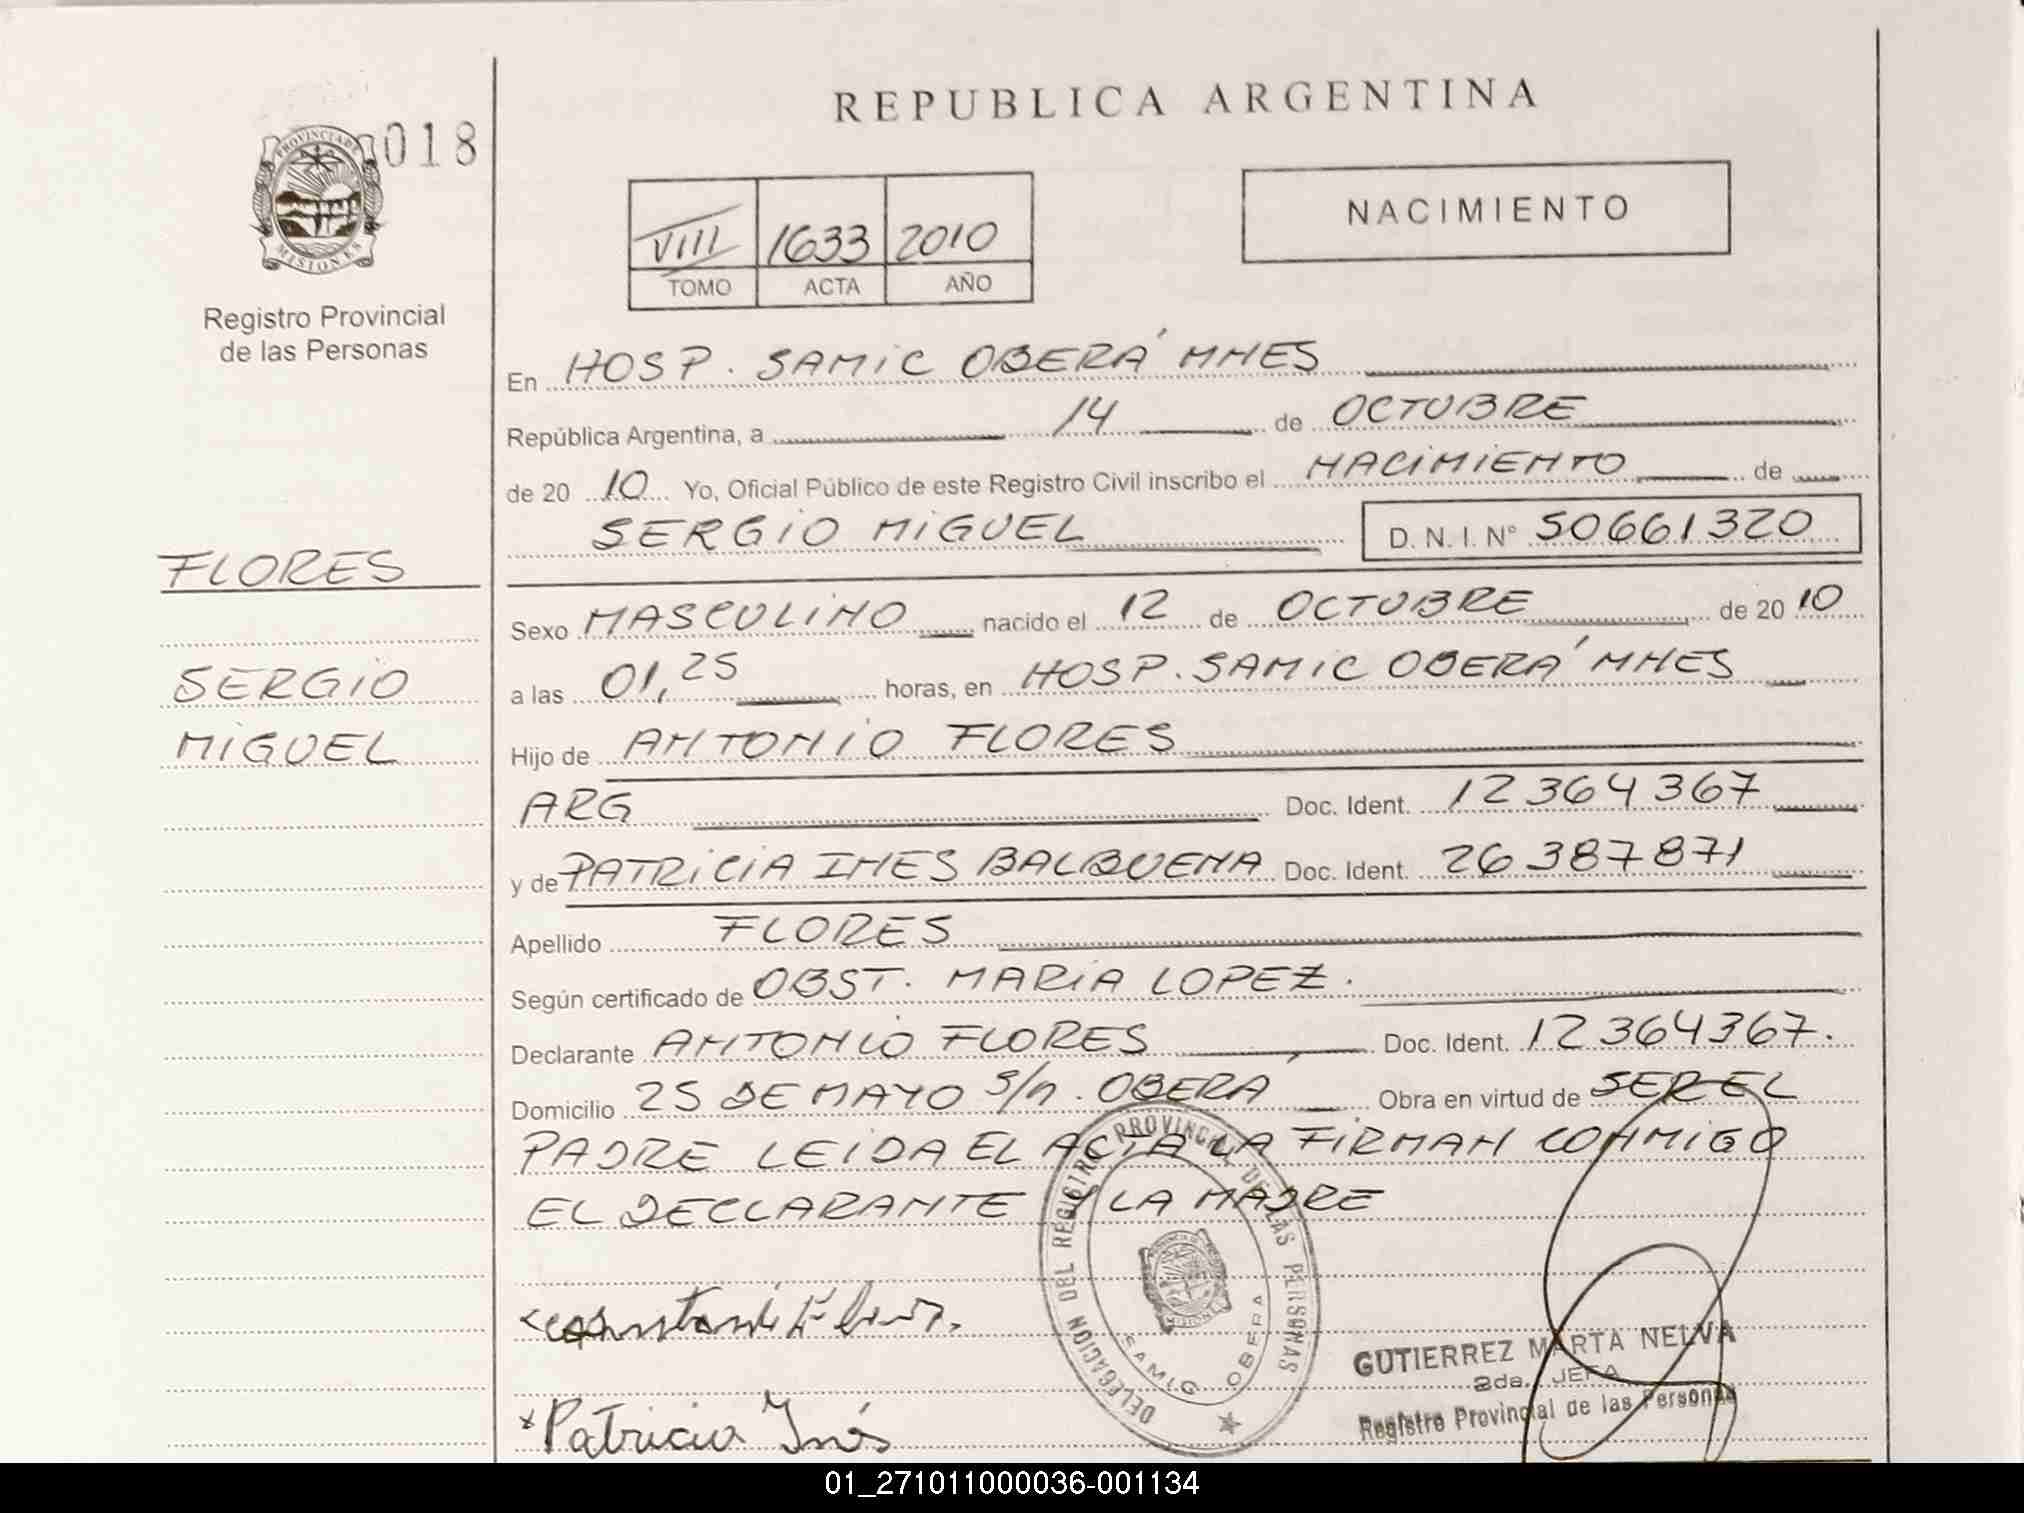 REPUBLICA ARGENTINA
018
PROVINCIA DE
MISIONES
Registro Provincial
de las Personas
NACIMIENTO
VIII 1633 2010
TOMO ACTA AÑO
En HOSP. SAMIC OBERÁ MNES
República Argentina, a 14 de OCTUBRE
de 20 10 Yo, Oficial Público de este Registro Civil inscribo el NACIMIENTO de
SERGIO MIGUEL D. N. I. N° 50661320
FLORES
SERGIO
MIGUEL
Sexo MASCULINO nacido el 12 de OCTUBRE de 20 10
a las 01,25 horas, en HOSP. SAMIC OBERÁ MNES
Hijo de ANTONIO FLORES
ARG Doc. Ident. 12364367
y de PATRICIA INES BALBUENA Doc. Ident. 26387871
Apellido FLORES
Según certificado de OBST. MARIA LOPEZ.
Declarante ANTONIO FLORES Doc. Ident. 12364367.
Domicilio 25 DE MAYO S/n. OBERÁ Obra en virtud de SER EL
PADRE LEIDA EL ACTA LA FIRMAN CONMIGO
EL DECLARANTE Y LA MADRE
DELEGACION DEL REGISTRO PROVINCIAL DE LAS PERSONAS
SAMIC OBERA
GUTIERREZ MARTA NELVA
2da. JEFA
Registro Provincial de las Personas
Patricia Inés
01_271011000036-001134